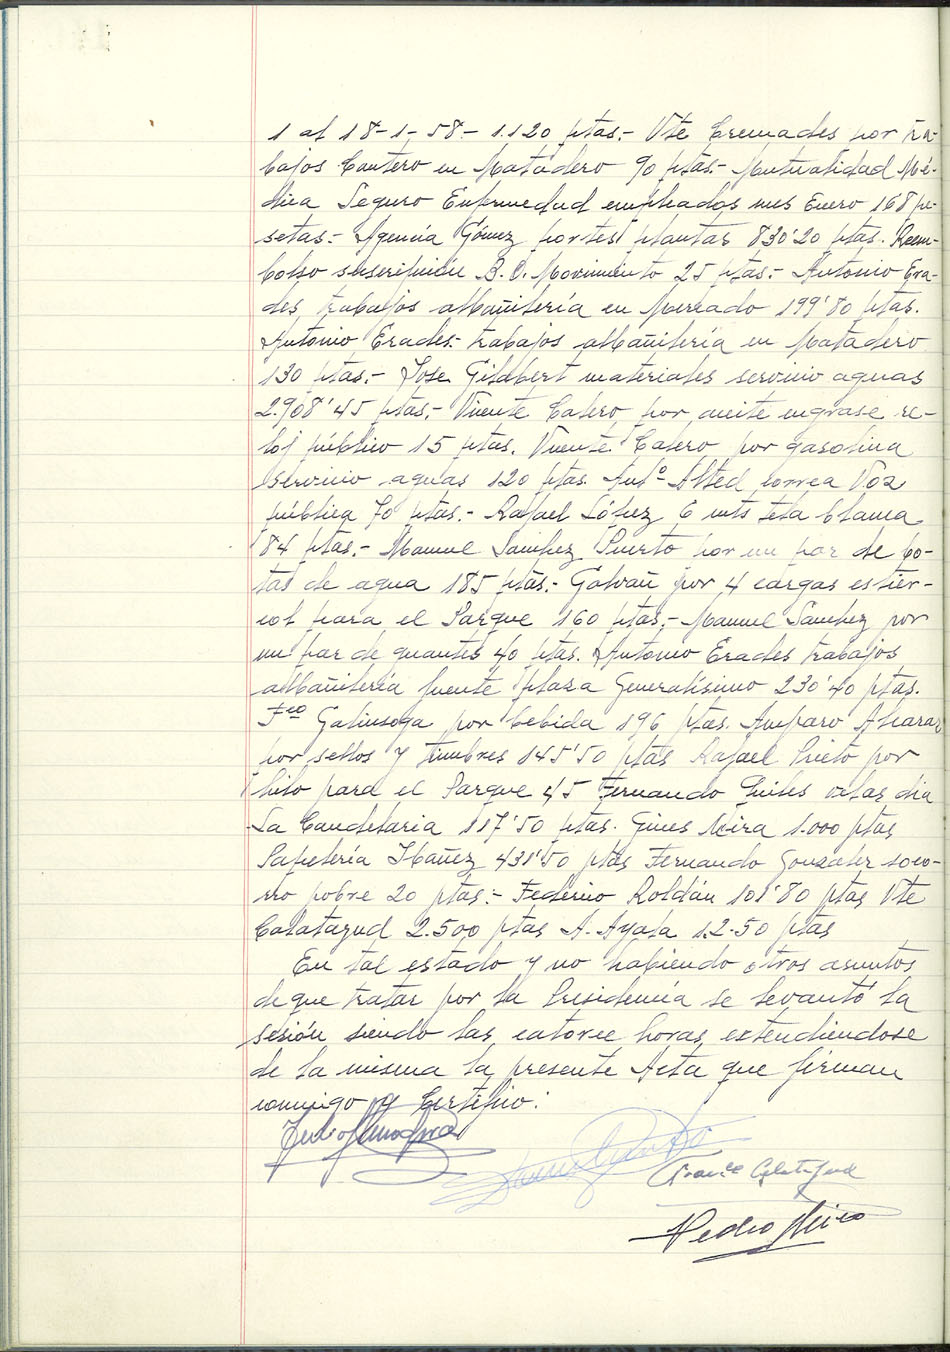 1 al 18-1-58- 1.120 ptas.- Vte Cremades por tra-
bajos Cantero en Matadero 90 ptas.- Mutualidad Mé-
dica Seguro Enfermedad empleados mes Enero 168 pe-
setas.- Agencia Gómez portes plantas 830'20 ptas. Reem-
bolso suscripción B.O. Movimiento 25 ptas.- Antonio Era-
des, trabajos albañilería en Mercado 199'80 ptas.
Antonio Erades.- trabajos albañilería en Matadero
130 ptas.- Jose Gilabert materiales servicio aguas
2.908'45 ptas.- Vicente Calero por aceite engrase re-
loj público 15 ptas. Vicente Calero por gasolina
servicio aguas 120 ptas. Antº Alted correa Voz
pública 70 ptas.- Rafael López 6 mts tela blanca
84 ptas.- Manuel Sanchez Puerto por un par de bo-
tas de agua 185 ptas.- Galvañ por 4 cargas estier-
col para el Parque 160 ptas.- Manuel Sanchez por
un par de guantes 40 ptas. Antonio Erades trabajos
albañilería fuente plaza Generalísimo 230'40 ptas.
Fco Galinsoga por bebida 196 ptas. Amparo
por sellos y timbres 145'50 ptas Rafael Prieto por
hilo para el Parque 45 Fernando velas dia
La Candelaria 117'50 ptas. Gines Mira 1.000 ptas
Papelería Ibañez 431'50 ptas Fernando Gonzalez soco-
rro pobre 20 ptas.- Federico Roldán 101'80 ptas Vte
Calatayud 2.500 ptas A. Ayala 12.50 ptas
En tal estado y no habiendo otros asuntos
de que tratar por la Presidencia se levantó la
sesión siendo las catorce horas, extendiendose
de la misma la presente Acta que firman
conmigo y Certifico:
Francº Calatayud
Pedro